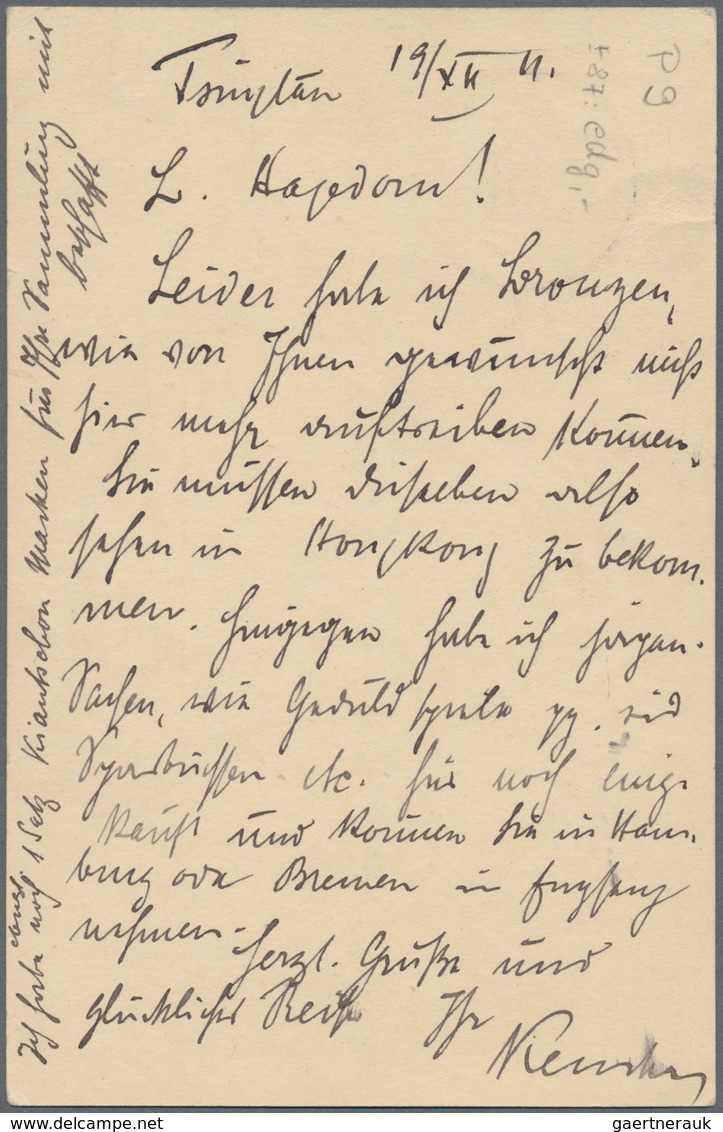 Tsingtau 19/XII 11.
L. Hagedorn!
Leider habe ich Bronzen,
wie von Ihnen gewünscht nicht
hier mehr auftreiben können.
Sie müssen dieselben also
sehen in Hongkong zu bekom-
men. Hingegen habe ich japan.
Sachen, wie Geduldspiele pp. und
Sparbüchsen etc. hier noch einge-
kauft und können Sie in Ham-
burg oder Bremen in Empfang
nehmen.
Herzl. Grüße und
glückliche Reise Ihr
Ich habe noch 1 Satz Kiautschou Marken für Ihre Sammlung mit
P9
gaertnerauk